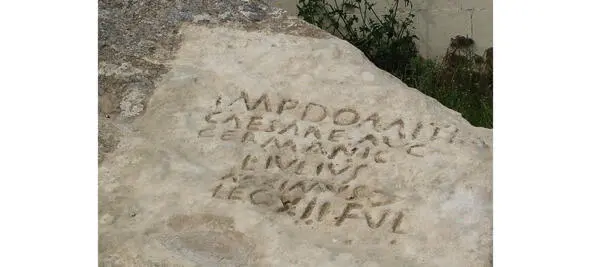 IMP DOMITI
CAESARE AVG
GERMANIC
L IVLIVS
MAXIMVS
LEG XII FVL